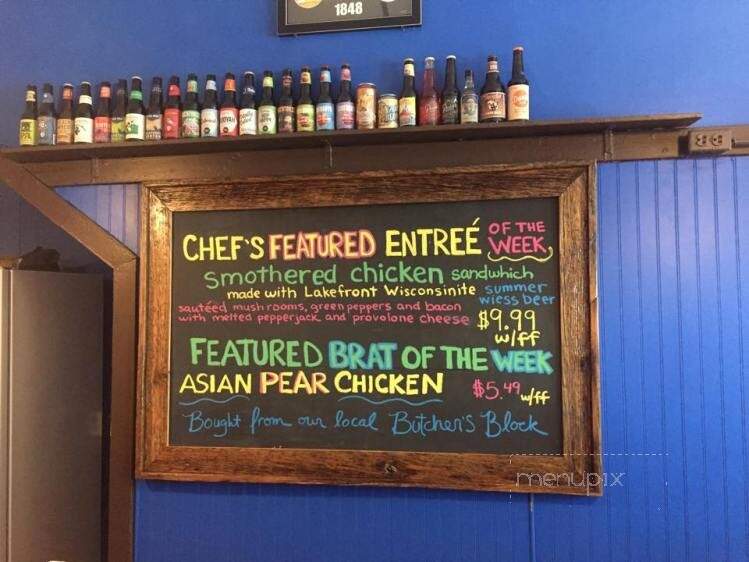 1848
CHEF'S FEATURED ENTREÉ OF THE WEEK
smothered chicken sandwhich
made with Lakefront Wisconsinite summer wiess beer
sautéed mushrooms, green peppers and bacon
with melted pepperjack and provolone cheese $9.99 w/ff
FEATURED BRAT OF THE WEEK
ASIAN PEAR CHICKEN $5.49 w/ff
Bought from our local Butcher's Block
menupix